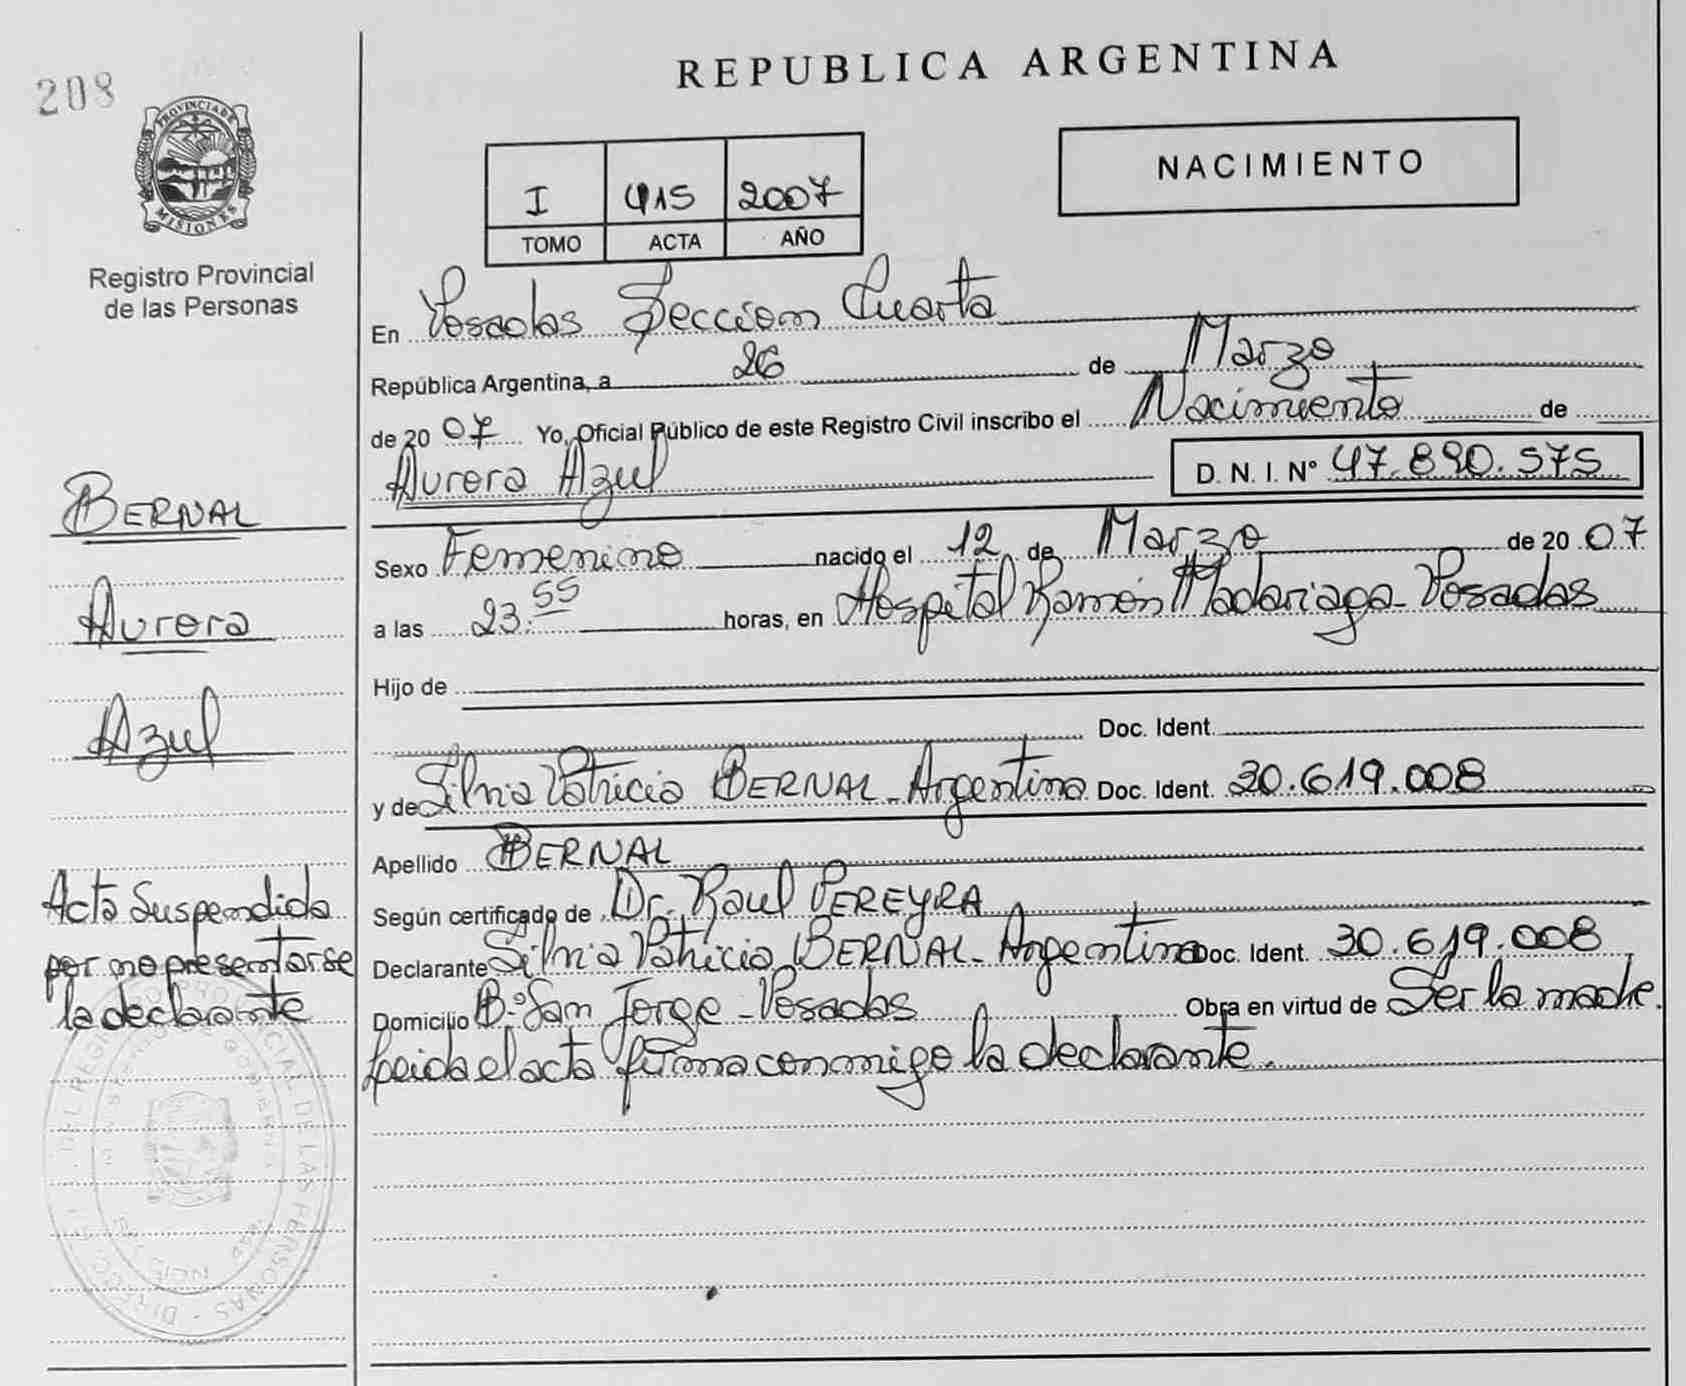 208
PROVINCIA DE
MISIONES
Registro Provincial
de las Personas
REPUBLICA ARGENTINA
NACIMIENTO
I 415 2007
TOMO ACTA AÑO
En Posadas Seccion Cuarta
República Argentina, a 26 de Marzo
de 2007 Yo, Oficial Público de este Registro Civil inscribo el Nacimiento de
Aurora Azul D. N. I. Nº 47.890.575
Sexo Femenino nacido el 12 de Marzo de 2007
a las 23.55 horas, en Hospital Ramón Madariaga - Posadas
Hijo de
Doc. Ident.
y de Silvia Patricia BERNAL - Argentina Doc. Ident. 30.619.008
Apellido BERNAL
Según certificado de Dr. Raul PEREYRA
Declarante Silvia Patricia BERNAL - Argentina Doc. Ident. 30.619.008
Domicilio Bº San Jorge - Posadas Obra en virtud de Ser la madre.
Leida el acta firma conmigo la declarante.
BERNAL
Aurora
Azul
Acta Suspendida
por no presentarse
la declarante